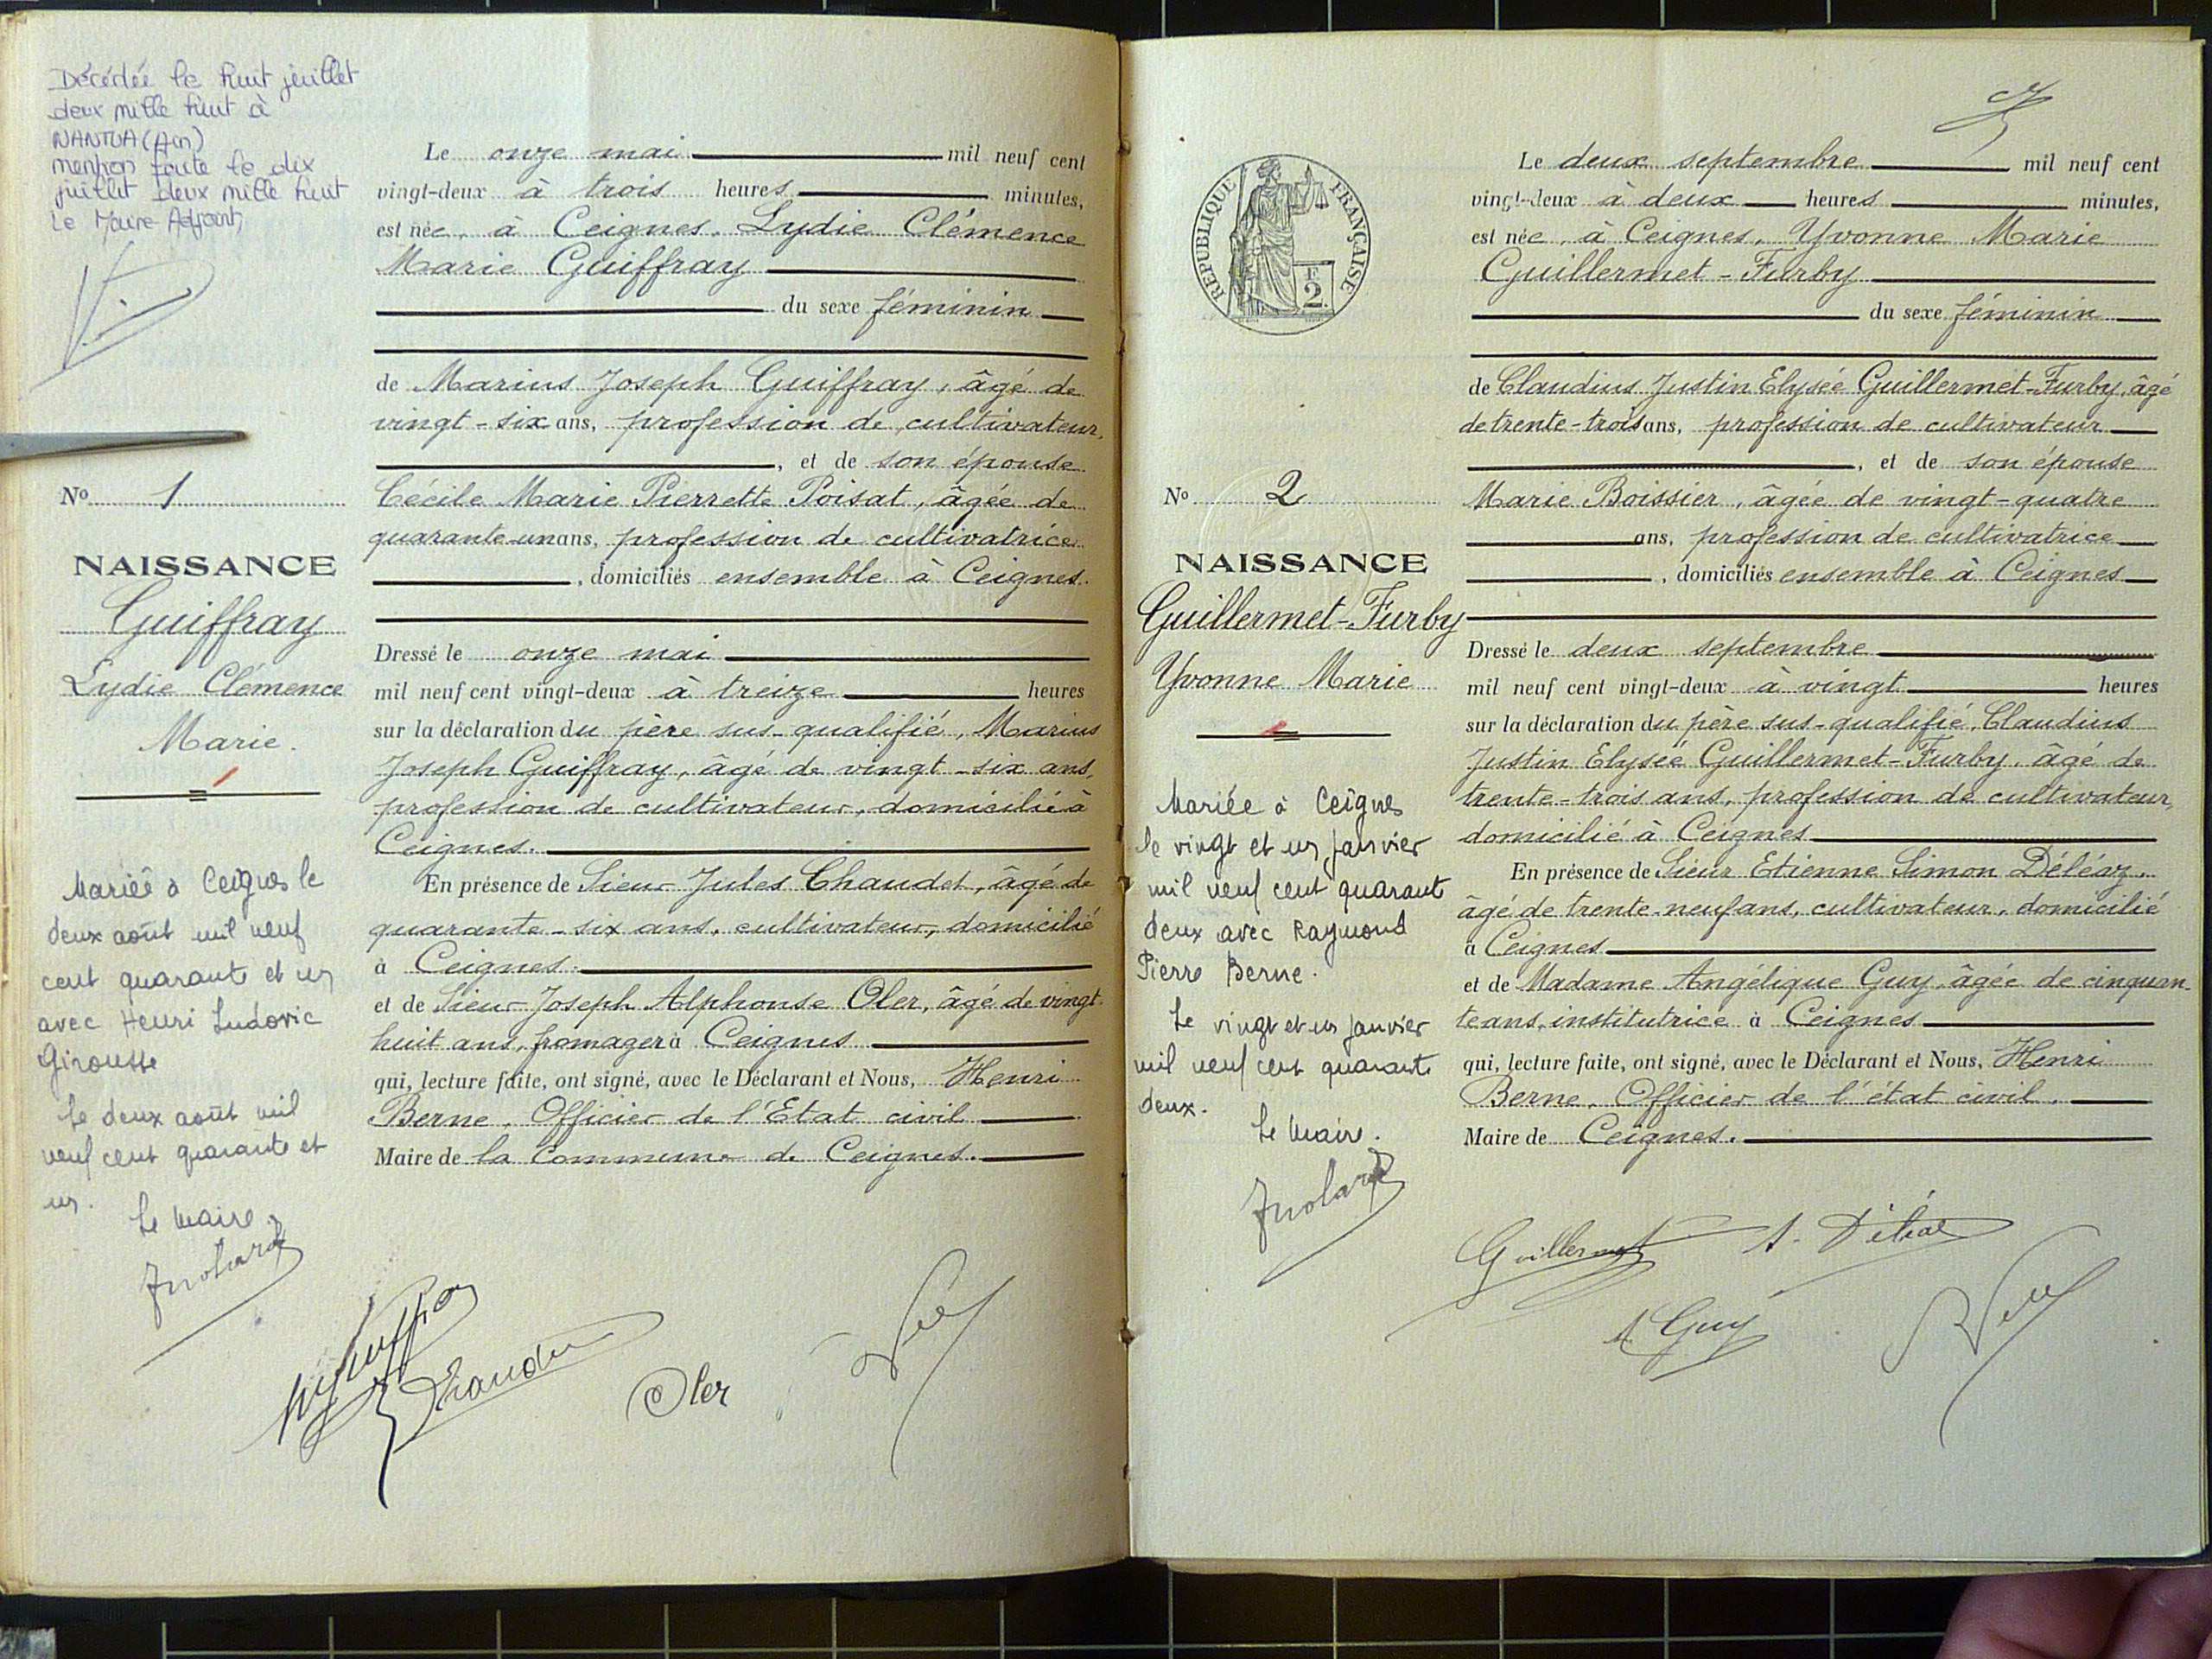 Décédée le huit juillet
deux mille huit à
NANTUA (Ain)
mention faite le dix
juillet deux mille huit
Le Maire Adjoint,
No 1
NAISSANCE
Guiffray
Lydie Clémence
Marie.
Mariée à Ceignes le
deux août mil neuf
cent quarante et un
avec Henri Ludovic
Girousse
Le deux août mil
neuf cent quarante et
un.
Le Maire.
Le onze mai mil neuf cent
vingt-deux à trois heures minutes,
est née, à Ceignes, Lydie Clémence
Marie Guiffray
du sexe féminin
de Marius Joseph Guiffray, âgé de
vingt-six ans, profession de cultivateur,
, et de son épouse
Cécile Marie Pierrette Poisat, âgée de
quarante-un ans, profession de cultivatrice
, domiciliés ensemble à Ceignes.
Dressé le onze mai
mil neuf cent vingt-deux à treize heures
sur la déclaration du père sus-qualifié, Marius
Joseph Guiffray, âgé de vingt-six ans,
profession de cultivateur, domicilié à
Ceignes.
En présence de Sieur Jules Chaudet, âgé de
quarante-six ans, cultivateur, domicilié
à Ceignes.
et de Sieur Joseph Alphonse Oler, âgé de vingt-
huit ans, fromager à Ceignes
qui, lecture faite, ont signé, avec le Déclarant et Nous, Henri
Berne, Officier de l'Etat civil
Maire de la Commune de Ceignes.
Oler
RÉPUBLIQUE FRANÇAISE
F.
2
No 2
NAISSANCE
Guillermet-Furby
Yvonne Marie
Mariée à Ceignes
le vingt et un janvier
mil neuf cent quarante
deux avec Raymond
Pierre Berne.
Le vingt et un janvier
mil neuf cent quarante
deux.
Le Maire.
Le deux septembre mil neuf cent
vingt-deux à deux heures minutes,
est née, à Ceignes, Yvonne Marie
Guillermet-Furby
du sexe féminin
de Claudius Justin Elysée Guillermet-Furby, âgé
de trente-trois ans, profession de cultivateur
, et de son épouse
Marie Boissier, âgée de vingt-quatre
ans, profession de cultivatrice
, domiciliés ensemble à Ceignes
Dressé le deux septembre
mil neuf cent vingt-deux à vingt heures
sur la déclaration du père sus-qualifié, Claudius
Justin Elysée Guillermet-Furby, âgé de
trente-trois ans, profession de cultivateur,
domicilié à Ceignes
En présence de Sieur Etienne Simon Déléaz,
âgé de trente-neuf ans, cultivateur, domicilié
à Ceignes
et de Madame Angélique Guy, âgée de cinquan-
te ans, institutrice à Ceignes
qui, lecture faite, ont signé, avec le Déclarant et Nous, Henri
Berne, Officier de l'état civil,
Maire de Ceignes.
Guillermet
A Guy